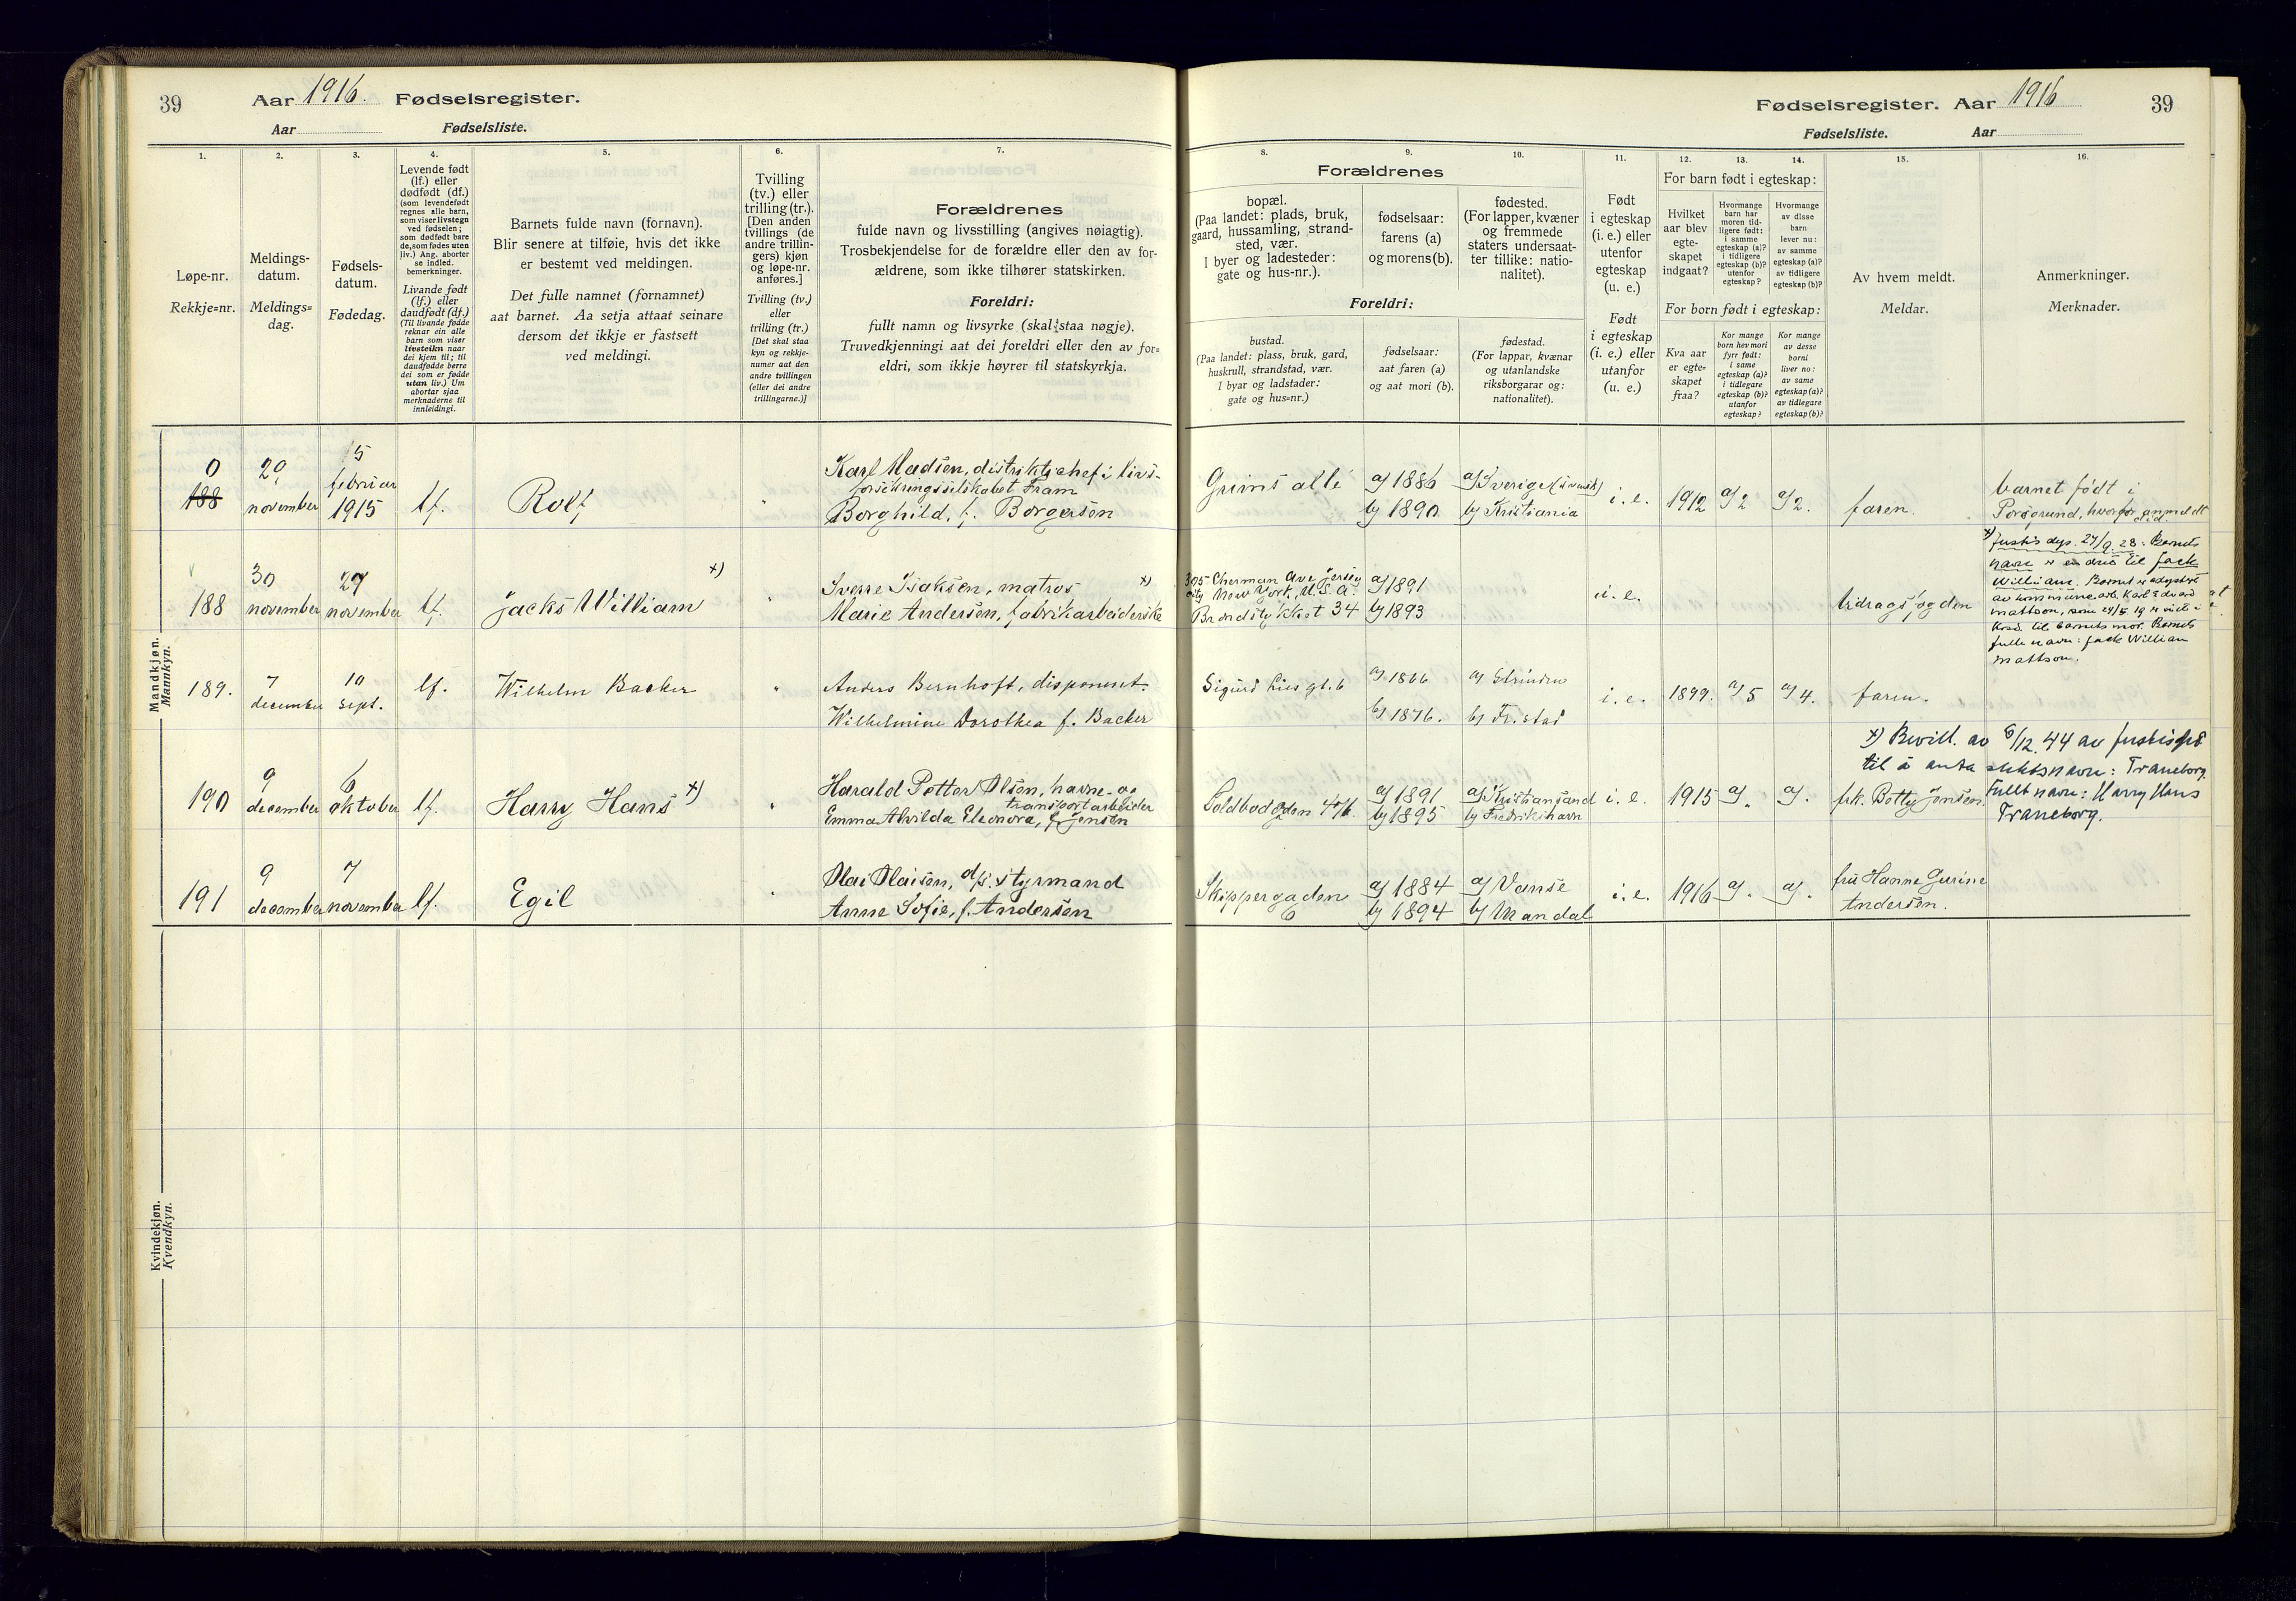 39
Aar 1916. Fødselsregister.
Aar Fødselsliste.
Fødselsregister. Aar 1916
39
Fødselsliste. Aar
1.
Løpe-nr.
Rekkje=nr.
2.
Meldings-
datum.
Meldings=
dag.
3.
Fødsels-
datum.
Fødedag.
4.
Levende født
(lf.) eller
dødfødt (df.)
(som levendefødt
regnes alle barn,
som viser livstegn
ved fødselen;
som dødfødt bare
de, som fødes uten
liv.) Ang. aborter
se indled.
bemerkninger.
Livande født
(lf.) eller
daudfødt (df.)
(Til livande fødde
reknar ein alle
barn som viser
livsteikn naar
dei kjem til; til
daudfødde berre
dei som er fødde
utan liv.) Um
abortar sjaa
merknaderne til
innleidingi.
5.
Barnets fulde navn (fornavn).
Blir senere at tilføie, hvis det ikke
er bestemt ved meldingen.
Det fulle namnet (fornamnet)
aat barnet. Aa setja attaat seinare
dersom det ikkje er fastsett
ved meldingi.
6.
Tvilling
(tv.) eller
trilling (tr.).
[Den anden
tvillings (de
andre trillin-
gers) kjøn
og løpe-nr.
anføres.]
Tvilling (tv.)
eller
trilling (tr.)
[Det skal staa
kyn og rekkje-
numer aat den
andre tvillingen
(eller dei andre
trillingarne.)]
7.
Forældrenes
fulde navn og livsstilling (angives nøiagtig).
Trosbekjendelse for de forældre eller den av for-
ældrene, som ikke tilhører statskirken.
Foreldri:
fullt namn og livsyrke (skal staa nøgje).
Truvedkjenningi aat dei foreldri eller den av for=
eldri, som ikkje høyrer til statskyrkja.
Forældrenes
8.
bopæl.
(Paa landet: plads, bruk,
gaard, hussamling, strand-
sted, vær.
I byer og ladesteder:
gate og hus-nr.).
9.
fødselsaar:
farens (a)
og morens (b).
10.
fødested.
(For lapper, kvæner
og fremmede
staters undersaat-
ter tillike: natio-
nalitet).
Foreldri:
bustad.
(Paa landet: plass, bruk, gard,
huskrull, strandstad, vær.
I byar og ladstader:
gate og hus=nr.)
fødselsaar:
aat faren (a)
og aat mori (b).
fødestad.
(For lappar, kvænar
og utanlandske
riksborgarar og:
nationalitet).
11.
Født
i egteskap
(i. e.) eller
utenfor
egteskap
(u. e.)
Født
i egteskap
(i. e.) eller
utanfor
(u. e.)
12.
13.
14.
For barn født i egteskap:
Hvilket
aar blev
egte-
skapet
indgaat?
Hvormange
barn har
moren tid-
ligere født:
i samme
egteskap (a)?
i tidligere
egteskap (b)?
utenfor
egteskap?
Hvormange
av disse
barn
lever nu:
av samme
egteskap (a)?
av tidligere
egteskap (b)?
For born født i egteskap:
Kva aar
er egte=
skapet
fraa?
Kor mange
born hev mori
fyrr født:
i same
egteskap (a)?
i tidlegare
egteskap (b)?
utanfor
egteskap?
Kor mange
av desse
borni
liver no:
av same
egteskap (a)?
av tidlegare
egteskap (b)?
15.
Av hvem meldt.
Meldar.
16.
Anmerkninger.
Merknader.
Mandkjøn.
Mannkyn.
0
188
29
november
15
februar
1915
lf.
Rolf
Karl Madsen, distriktschef i livs-
forsikringsselskabet Fram
Borghild, f. Borgersen
Grims allé
a) 1886
b) 1890
a) Sverige (svensk)
b) Kristiania
i. e.
1912
a) 2
a) 2.
faren.
barnet født i
Porsgrund, hvorfor anmeldt
188
30
november
27
november
lf.
Jacks William x)
Sverre Isaksen, matros x)
Marie Andersen, fabrikarbeiderske
305 Cherman Ave Jersey
City New York, U.S.A.
34
a) 1891
b) 1893
i. e.
bidragsfogden
x) Justisdep. 27/9. 28: Barnets
navn er endret til Jack
William. Barnet er adoptert
av kommunearb. Karl Edvard
Mattson, som 24/5 19 er viet i
Krsd. til barnets mor. Barnets
fulle navn: Jack William
Mattson.
189.
7
december
10
sept.
lf.
Wilhelm Backer
Anders Bernhoft, disponent.
Wilhelmine Dorothea f. Backer
Sigurd Lies gt. 6
a) 1866
b) 1876.
a) Strinden
b) Fr.stad
i. e.
1899.
a) 5
a) 4.
faren.
190
9
december
6
oktober
lf.
Harry Hans x)
Harald Petter Olsen, havne- og
transportarbeider
Emma Alvilda Eleonora, f. Jensen
a) 1891
b) 1895
a) Kristiansand
b) Fredrikshavn
i. e.
1915
a) .
a) .
frk. Betty Jensen.
x) Bevill. av 6/12. 44 av Justisdep
til å anta slektsnavn: Traneborg.
Fullt navn: Harry Hans
Traneborg.
191
9
december
7
november
lf.
Egil
Olai Olaisen, d/s. styrmand
Anne Sofie, f. Andersen
Skippergaden
6
a) 1884
b) 1894
a) Vanse
b) Mandal
i. e.
1916
a) .
a) .
fru Hanne Gurine
Andersen.
Kvindekjøn.
Kvendkyn.